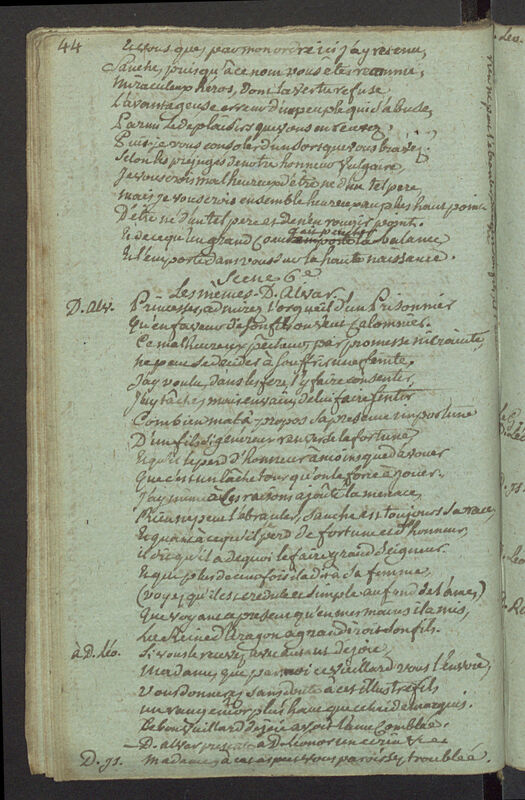 44
Et vous que, par mon ordre ici j'ay retenu,
Sanche, puisqu'à ce nom vous êtes reconnu,
Miraculeux héros, dont la vertu refuse
L'avantageuse erreur d'un peuple qui s'abuse,
Parmi les déplaisirs que vous en recevez,
Puis-je vous consoler d'un sort que vous bravez?
Selon les préjugés de notre honneur vulgaire,
Je vous crois malheureux d'être né d'un tel pere,
mais je vous crois ensemble heureux au plus haut point
D'être né d'un tel pere et de n'en rougir point.
Et de ce qu'un grand Coeur la balance
Et l'emporte dans vous sur la haute naissance.
Scene 6e
Les mêmes - D. Alvar.
D. Alv. Princesses, admirez l'orgueil d'un Prisonnier
Qu'en faveur de son fils on veut calomnier.
Ce malheureux pêcheur, par promesse ni crainte,
ne peut se décider à souffrir une feinte.
J'ay voulu, dans les fers, l'y faire consentir,
J'ay tâché, mais en vain, de lui faire sentir
Combien mal à propos sa présence importune
D'un fils si généreux renverse la fortune,
Et qu'il le perd d'honneur à moins que d'avouer
Que c'est un lâche tour qu'on le force à jouer.
J'ay même à ces raisons ajouté la menace,
Rien ne peut l'ébranler, Sanche est toujours sa race,
Et quant à ce qu'il perd de fortune et d'honneur,
il dit qu'il a de quoi le faire grand Seigneur.
Et que plus de cent fois il a dit à sa femme,
(voyez qu'il est crédule et simple au fond de l'ame,)
Que voyant ce présent qu'en mes mains il a mis,
La Reine d'Aragon agrandiroit son fils.
à D. Léo. Si vous le recevez avec autant de joie,
Madame, que par moi ce vieillard vous l'envoie,
vous donnerez sans doute à cet illustre fils
un rang encor plus haut que celui de marquis.
Ce bon vieillard de joie avoit l'ame comblée.
— D. alvar à D. Léonor un écrin
D. Is. Madame, à cet aspect vous paroissez troublée.